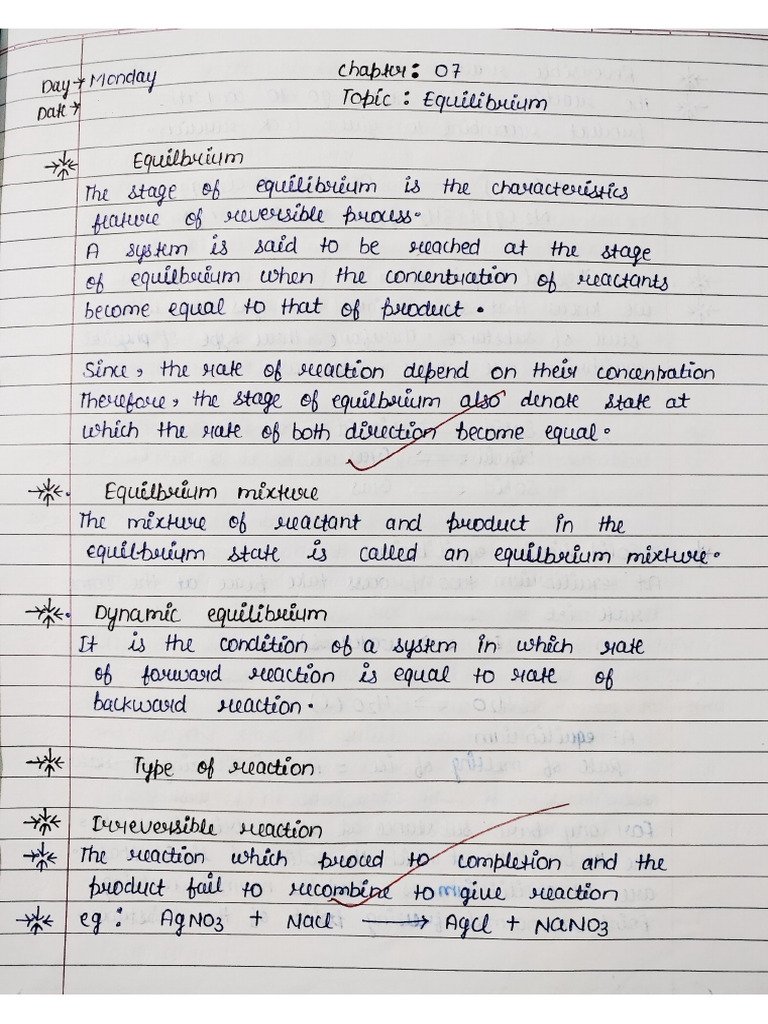 Day → Monday
Chapter: 07
Date →
Topic: Equilibrium
Equilbrium
The stage of equilibrium is the characteristics
feature of reversible process.
A system is said to be reached at the stage
of equilbrium when the concentration of reactants
become equal to that of product.
Since, the rate of reaction depend on their concentration
therefore, the stage of equilbrium also denote state at
which the rate of both direction become equal.
Equilbrium mixture
The mixture of reactant and product in the
equilbrium state is called an equilbrium mixture.
Dynamic equilibrium
It is the condition of a system in which rate
of forward reaction is equal to rate of
backward reaction.
Type of reaction
Irreversible reaction
The reaction which proced to completion and the
product fail to recombine to give reaction
eg: AgNO3 + Nacl → Agcl + NaNO3